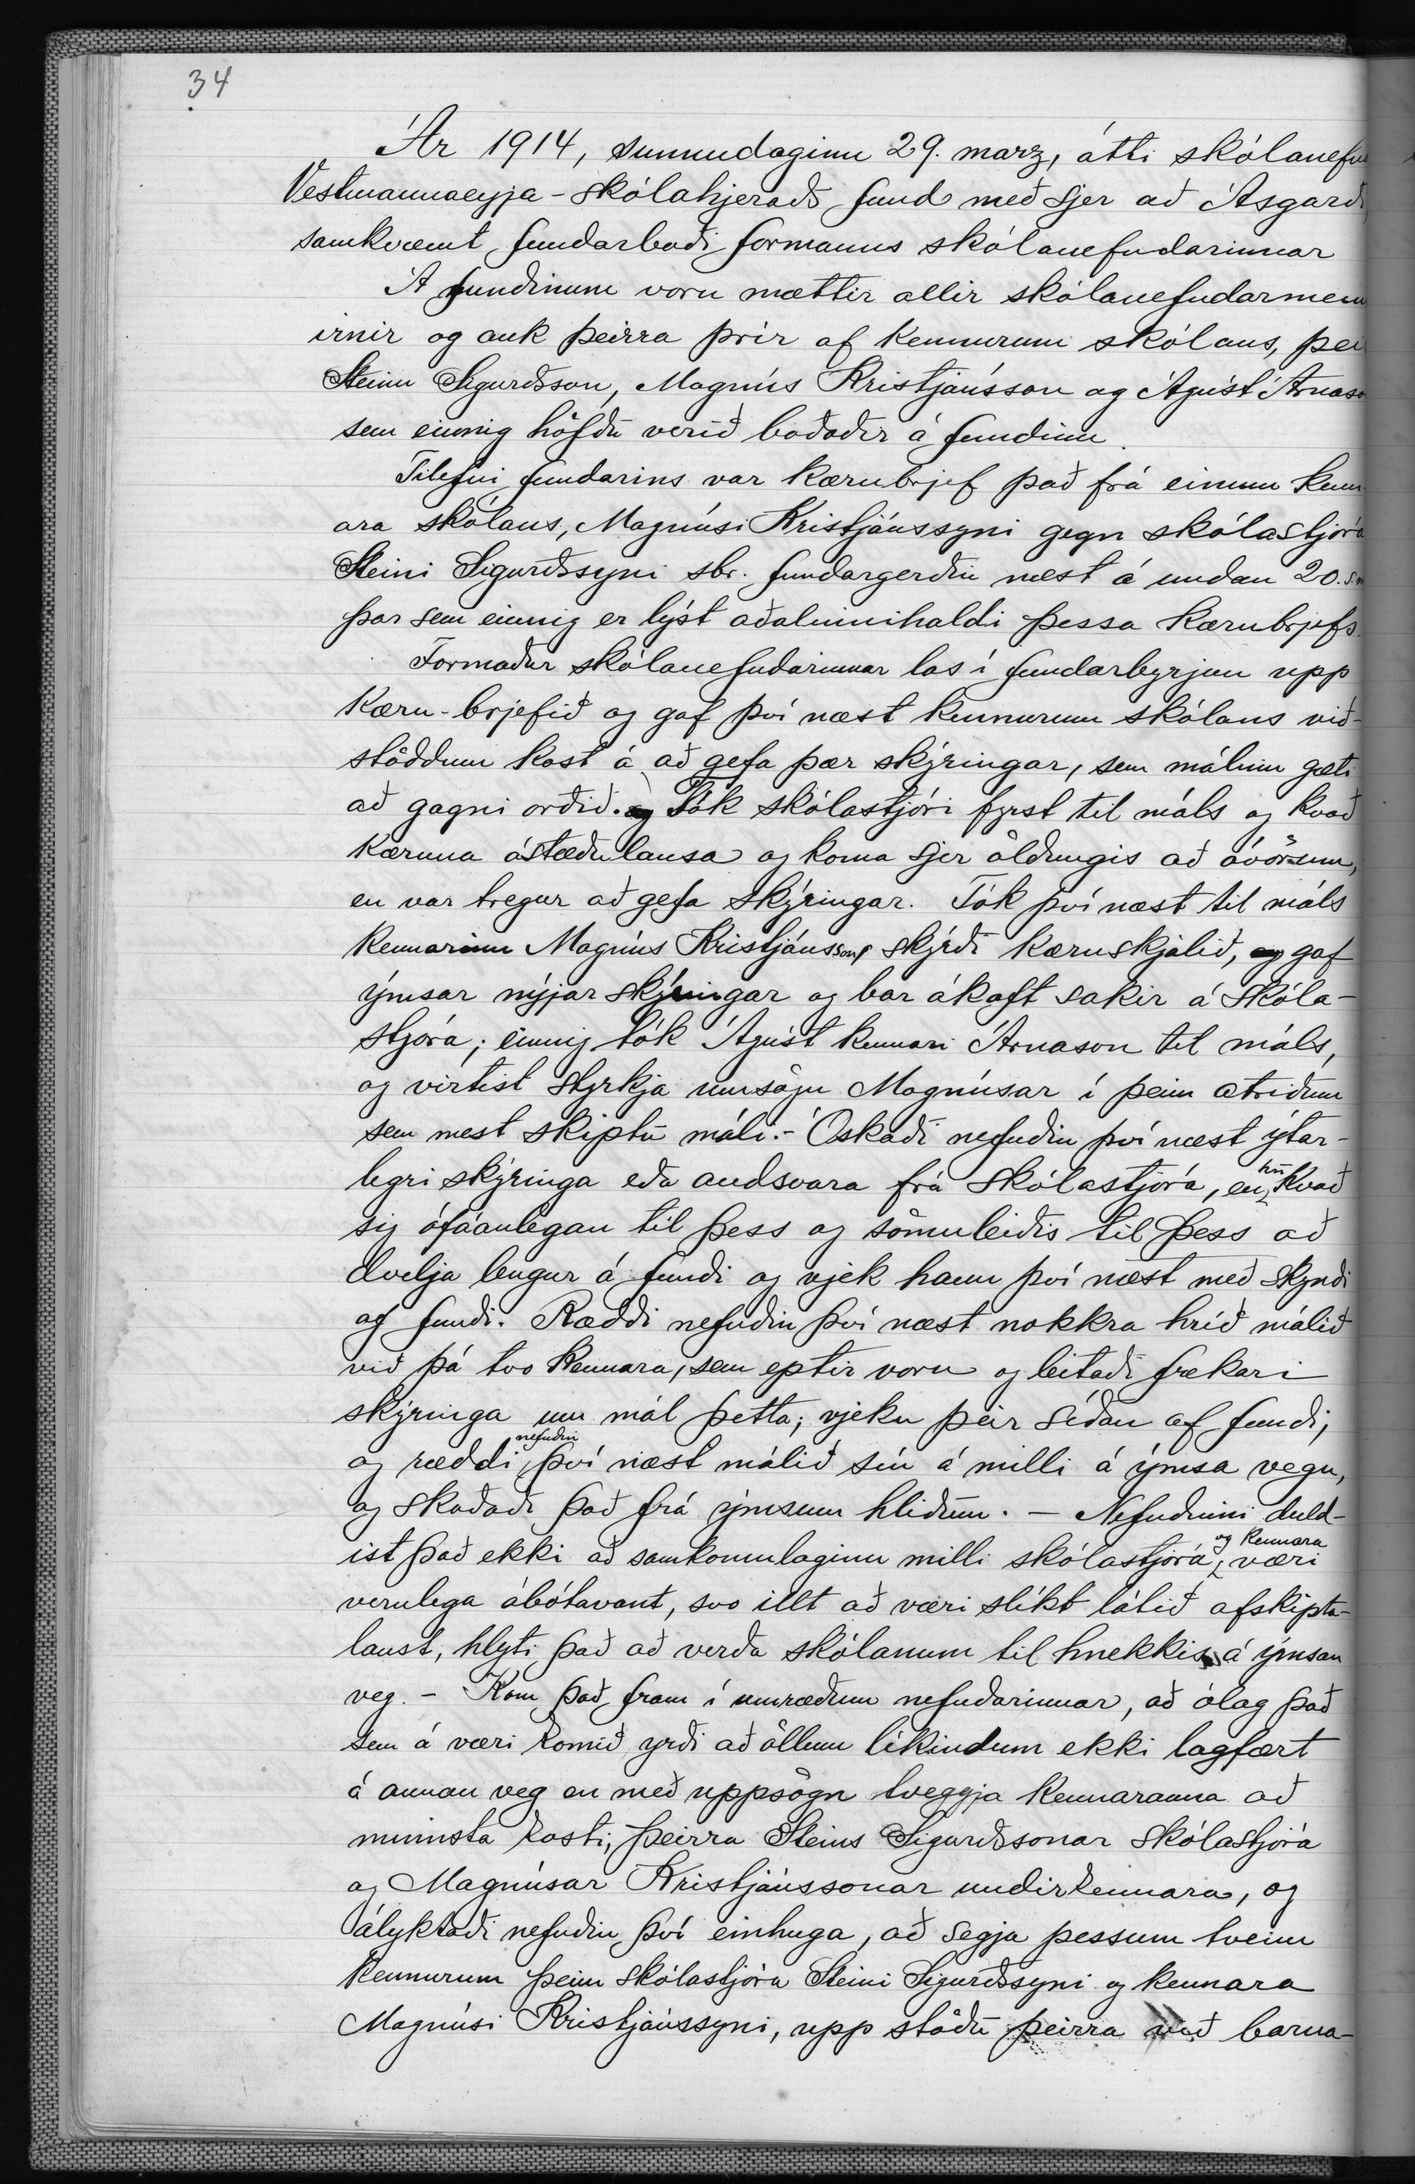 34
Ár 1914, sunnudaginn 29. marz, átti skólanefn
Vestmannaeyja-skólahjeraðs fund með sjer að Ásgarði
samkvæmt fundarboði formanns skólanefndarinnar
Á fundinum voru mættir allir skólanefndarmenn
irnir og auk þeirra þrír af kennurum skólans, þei
Steinn Sigurðsson, Magnús Kristjánsson og Ágúst Árnaso
sem einnig höfðu verið boðaðir á fundinn.
Tilefni fundarins var kærubrjef það frá einum kenn-
ara skólans, Magnúsi Kristjánssyni gegn skólastjóra
Steini Sigurðssyni sbr. fundargerðin næst á undan 20. s.m
þar sem einnig er lýst aðalinnihaldi þessa kærubrjefs.
Formaður skólanefndarinnar las í fundarbyrjun upp
kæru-brjefið og gaf því næst kennurum skólans við-
stöddum kost á að gefa þær skýringar, sem málinu gæti
að gagni orðið. Tók skólastjóri fyrst til máls og kvað
kæruna ástæðulausa og koma sjer öldungis að óvörum,
en var tregur að gefa skýringar. Tók því næst til máls
kennarinn Magnús Kristjánsson, skýrði kæruskjalið, gaf
ýmsar nýjar skýringar og bar ákaft sakir á skóla-
stjóra; einnig tók Ágúst kennari Árnason til máls,
og virtist styrkja umsögn Magnúsar í þeim atriðum
sem mest skiptu máli. - Óskaði nefndin því næst ýtar-
legri skýringa eða andsvara frá skólastjóra, en hn kvað
sig ófáanlegan til þess og sömuleiðis til þess að
dvelja lengur á fundi og vjek hann því næst með skyndi
af fundi. Ræddi nefndin því næst nokkra hríð málið
við þá tvo kennara, sem eptir voru og leitaði frekari
skýringa um mál þetta; vjeku þeir síðan af fundi,
og ræddi nefndin því næst málið sín á milli á ýmsa vegu,
og skoðaði það frá ýmsum hliðum. - Nefndinni duld-
ist það ekki að samkomulaginu milli skólastjóra og kennara væri
verulega ábótavant, svo illt að væri slíkt látið afskipta-
laust, hlyti það að verða skólanum til hnekkis á ýmsan
veg. - Kom það fram í umræðum nefndarinnar, að ólag það
sem á væri komið yrði að öllum líkindum ekki lagfært
á annan veg en með uppsögn tveggja kennaranna að
minnsta kosti, þeirra Steins Sigurðssonar skólastjóra
og Magnúsar Kristjánssonar undirkennara, og
ályktaði nefndin því einhuga, að segja þessum tveim
kennurum þeim skólastjóra Steini Sigurðssyni og kennara
Magnúsi Kristjánssyni, upp stöðu þeirra við barna-